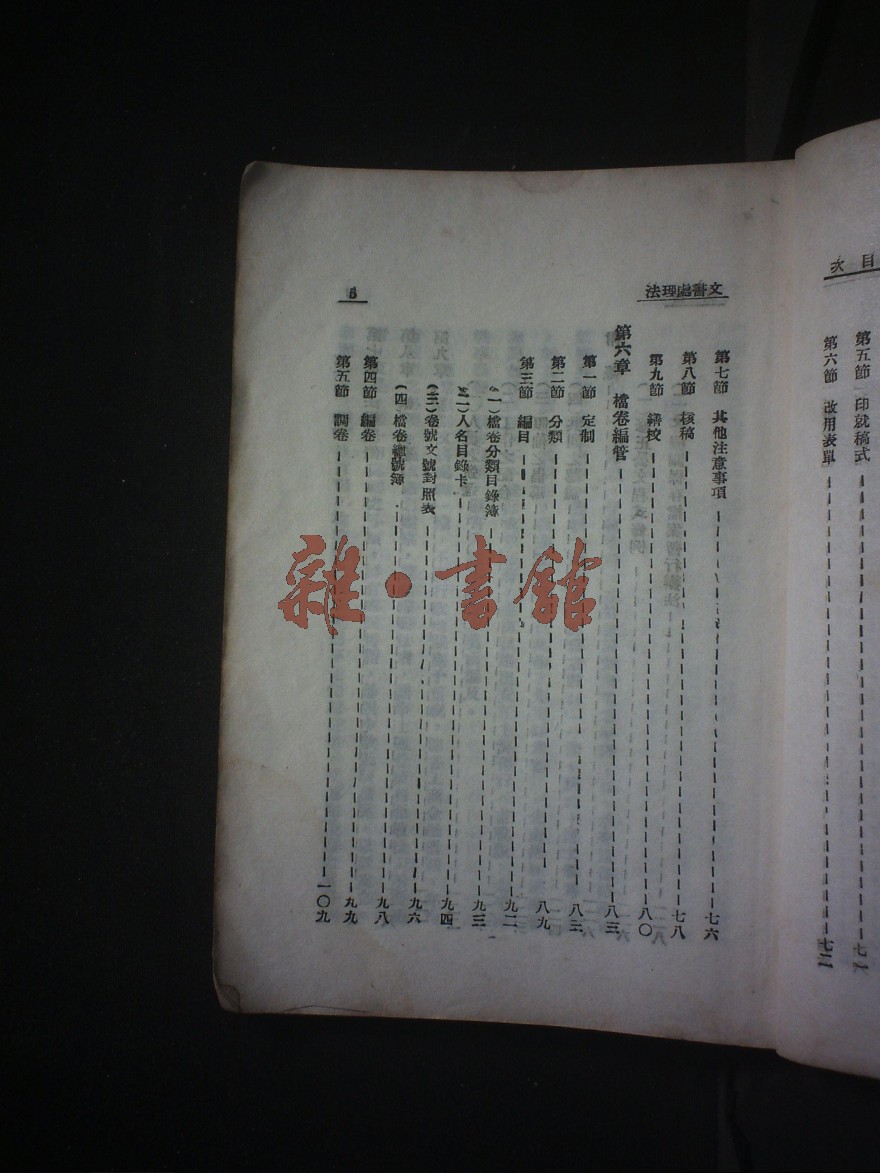 目次
第五節　印就稿式　七一
第六節　改用表單　七二
文書處理法
6
第七節　其他注意事項　七六
第八節　核稿　七八
第九節　繕校　八〇
第六章　檔卷編管　八三
第一節　定制　八三
第二節　分類　八九
第三節　編目　九二
（一）檔卷分類目錄簿　九三
（二）人名目錄卡　九四
（三）卷號文號對照表　九六
（四）檔卷總號簿　九八
第四節　編卷　九九
第五節　調卷　一〇九
雜·書館